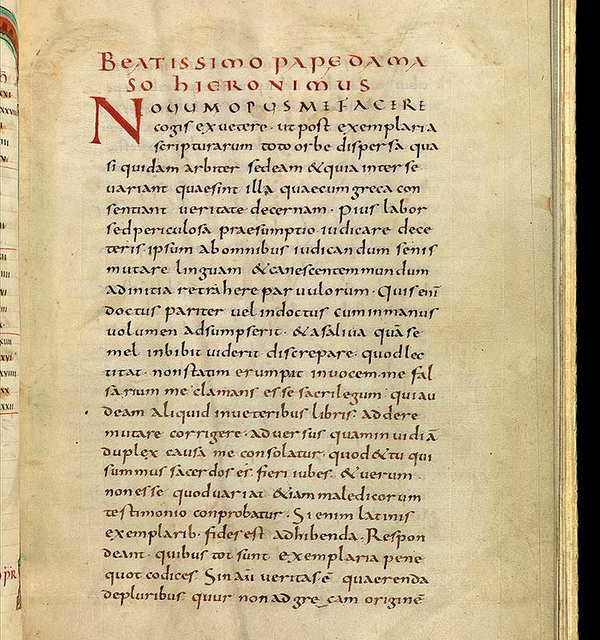 BEATISSIMO PAPE DAMA
SO hIERONIMUS
NOUUM OPUS ME FACERE
cogis exuetere · ut post exemplaria
scripturarum toto orbe dispersa qua
si quidam arbiter sedeam & quia inter se
uariant quaesint illa quaecum greca con
sentiant ueritate decernam · Pius labor
sed periculosa praesumptio iudicare cete
teris ipsum abomnibus iudicandum senis
mutare linguam & canescentem mundum
adinitia retrahere paruulorum · Quis eni
doctus pariter uel indoctus cum inmanus
uolumen adsumpserit · & asaliua quā se
mel inbibit uiderit discrepare · quod lec
titat · non statim erumpat inuocem · me fal
sarium me clamans esse sacrilegum · qui au
deam aliquid inueteribus libris · addere
mutare corrigere · aduersus quam inuidiā
duplex causa me consolatur · quod & tu qui
summus sacerdos es · fieri iubes · & uerum
non esse quod uariat &iam maledicorum
testimonio conprobatur · Si enim latinis
exemplarib· fides est adhibenda · Respon
deant · quibus tot sunt exemplaria pene
quot codices · Sin aū ueritas ē quaerenda
depluribus quur non ad grecam originē